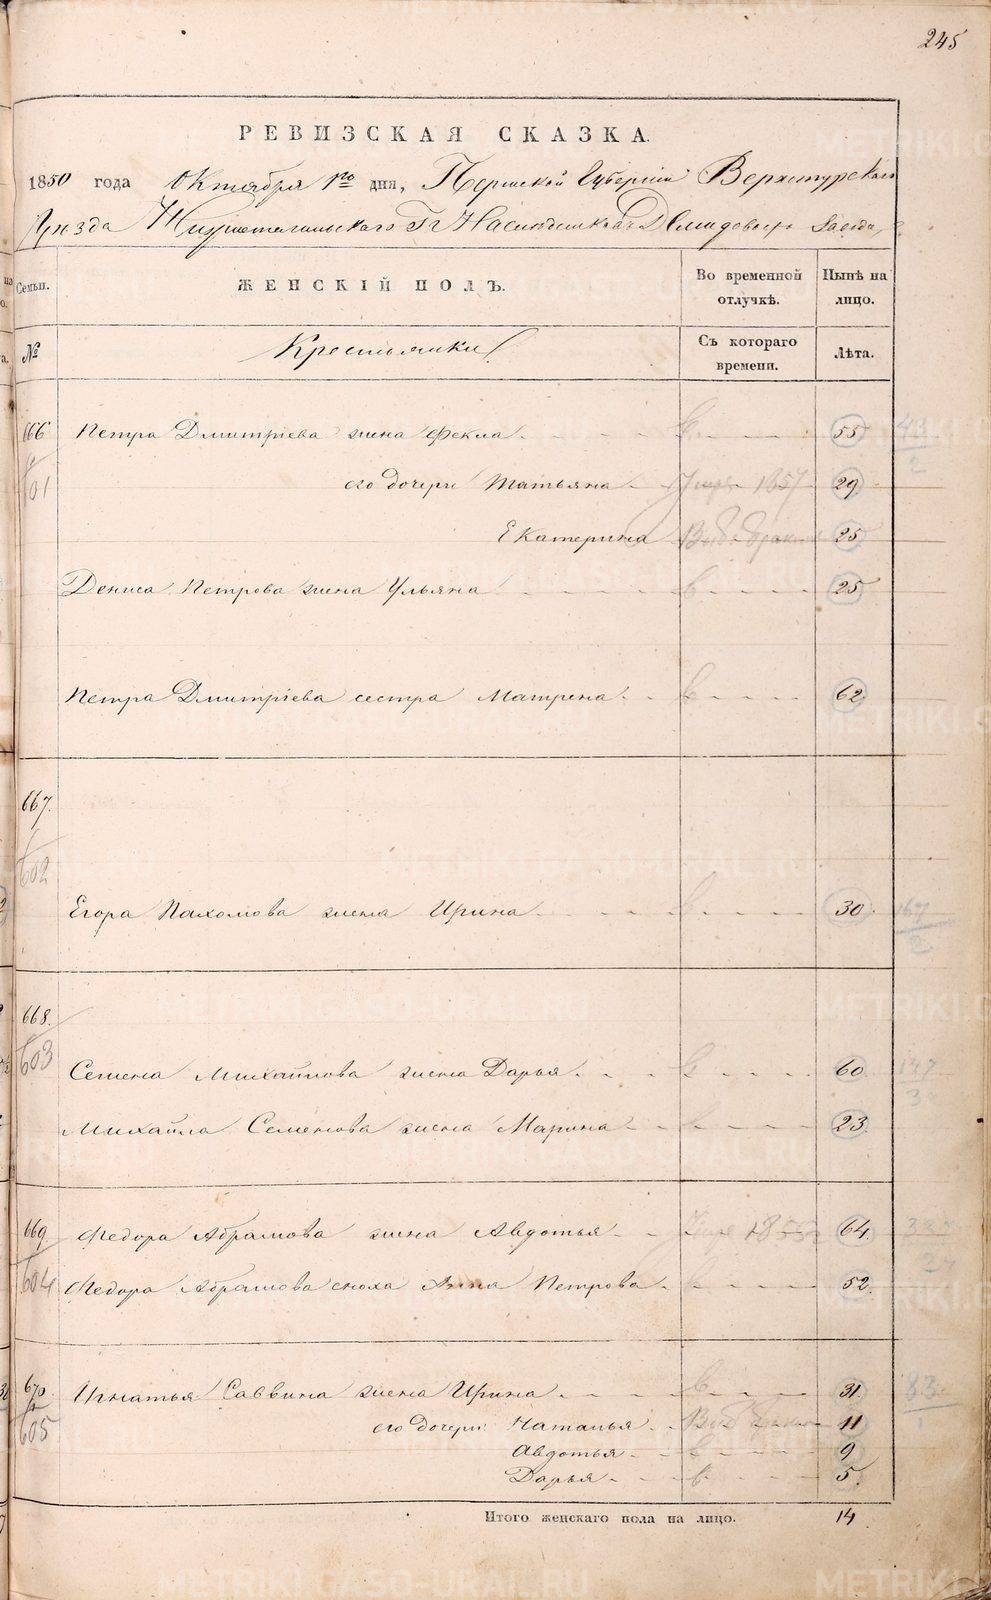 245
РЕВИЗСКАЯ СКАЗКА.
1850 года Октября 1го дня, Пермской Губернии Верхотурскаго
Уѣзда Нижнетагильскаго Гг Наслѣдниковъ Демидовыхъ Завода
Семьи. ЖЕНСКІЙ ПОЛЪ. Во временной отлучкѣ. Нынѣ на лицо.
№ Крестьянки Съ котораго времени. Лѣта.
666 Петра Дмитріева жена Фекла 55 43
601 его дочери Татьяна 1857 29
Екатерина 25
Дениса Петрова жена Ульяна 25
Петра Дмитріева сестра Матрена 62
667.
602
Егора Пахомова жена Ирина 30. 167
2
668.
603 Семена Михайлова жена Дарья 60 147
Михайла Семенова жена Марина 23
669 Федора Абрамова жена Авдотья 1855 64
604 Федора Абрамова сноха Анна Петрова 52.
670. Игнатья Саввина жена Ирина 31 83
605 его дочери: Наталья 11
Авдотья 9
Дарья 5
Итого женскаго пола на лицо. 14
METRIKI.GASO-URAL.RU